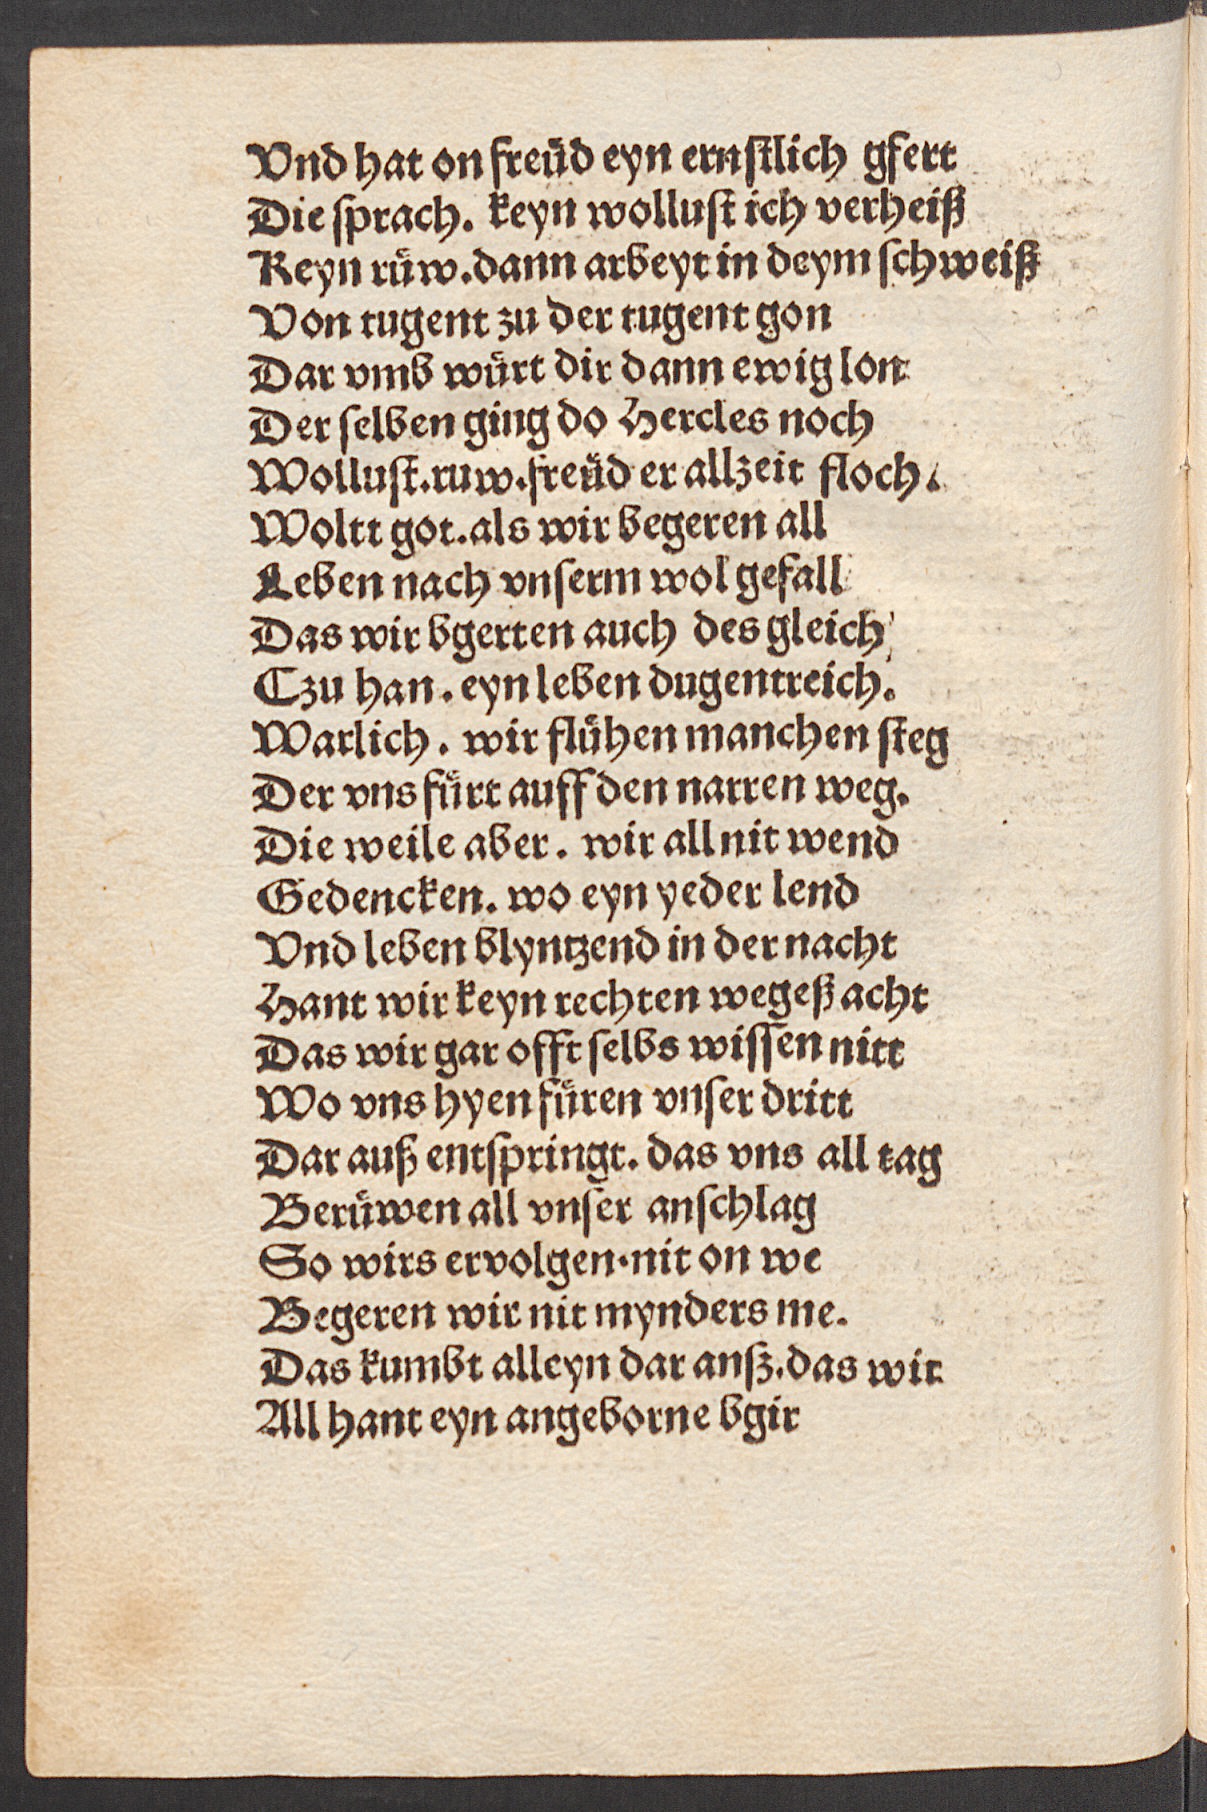 Vnd hat on freüd eyn ernſtlich gfert
Die ſprach. keyn wolluſt ich verheiß
Keyn ruͤw. dann arbeyt in deym ſchweiß
Von tugent zu der tugent gon
Dar vmb wuͤrt dir dann ewig lon
Der ſelben ging do Hercles noch
Wolluſt. ruw. freüd er allzeit floch.
Woltt got. als wir begeren all
Leben nach vnſerm wol gefall
Das wir bgerten auch des gleich
Czu han. eyn leben dugentreich.
Warlich. wir fluͤhen manchen ſteg
Der vns fuͤrt auff den narren weg.
Die weile aber. wir all nit wend
Gedencken. wo eyn yeder lend
Vnd leben blyntzend in der nacht
Hant wir keyn rechten wegeß acht
Das wir gar offt ſelbs wiſſen nitt
Wo vns hyen fuͤren vnſer dritt
Dar auß entſpringt. das vns all tag
Beruͤwen all vnſer anſchlag
So wirs ervolgen. nit on we
Begeren wir nit mynders me.
Das kumbt alleyn dar anſz. das wir
All hant eyn angeborne bgir